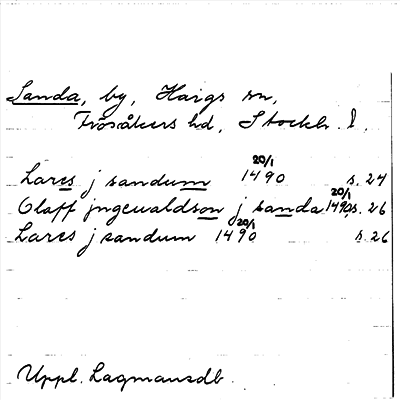 Sanda, by, Haigs sn,
Frösåkers hd, Stockh. l.
Lares j sandum 20/1 1490 s. 24
Olaff jngewaldson j sanda 20/1 1490 s. 26
Lares j sandum 20/1 1490 s. 26
Uppl. Lagmansdb.